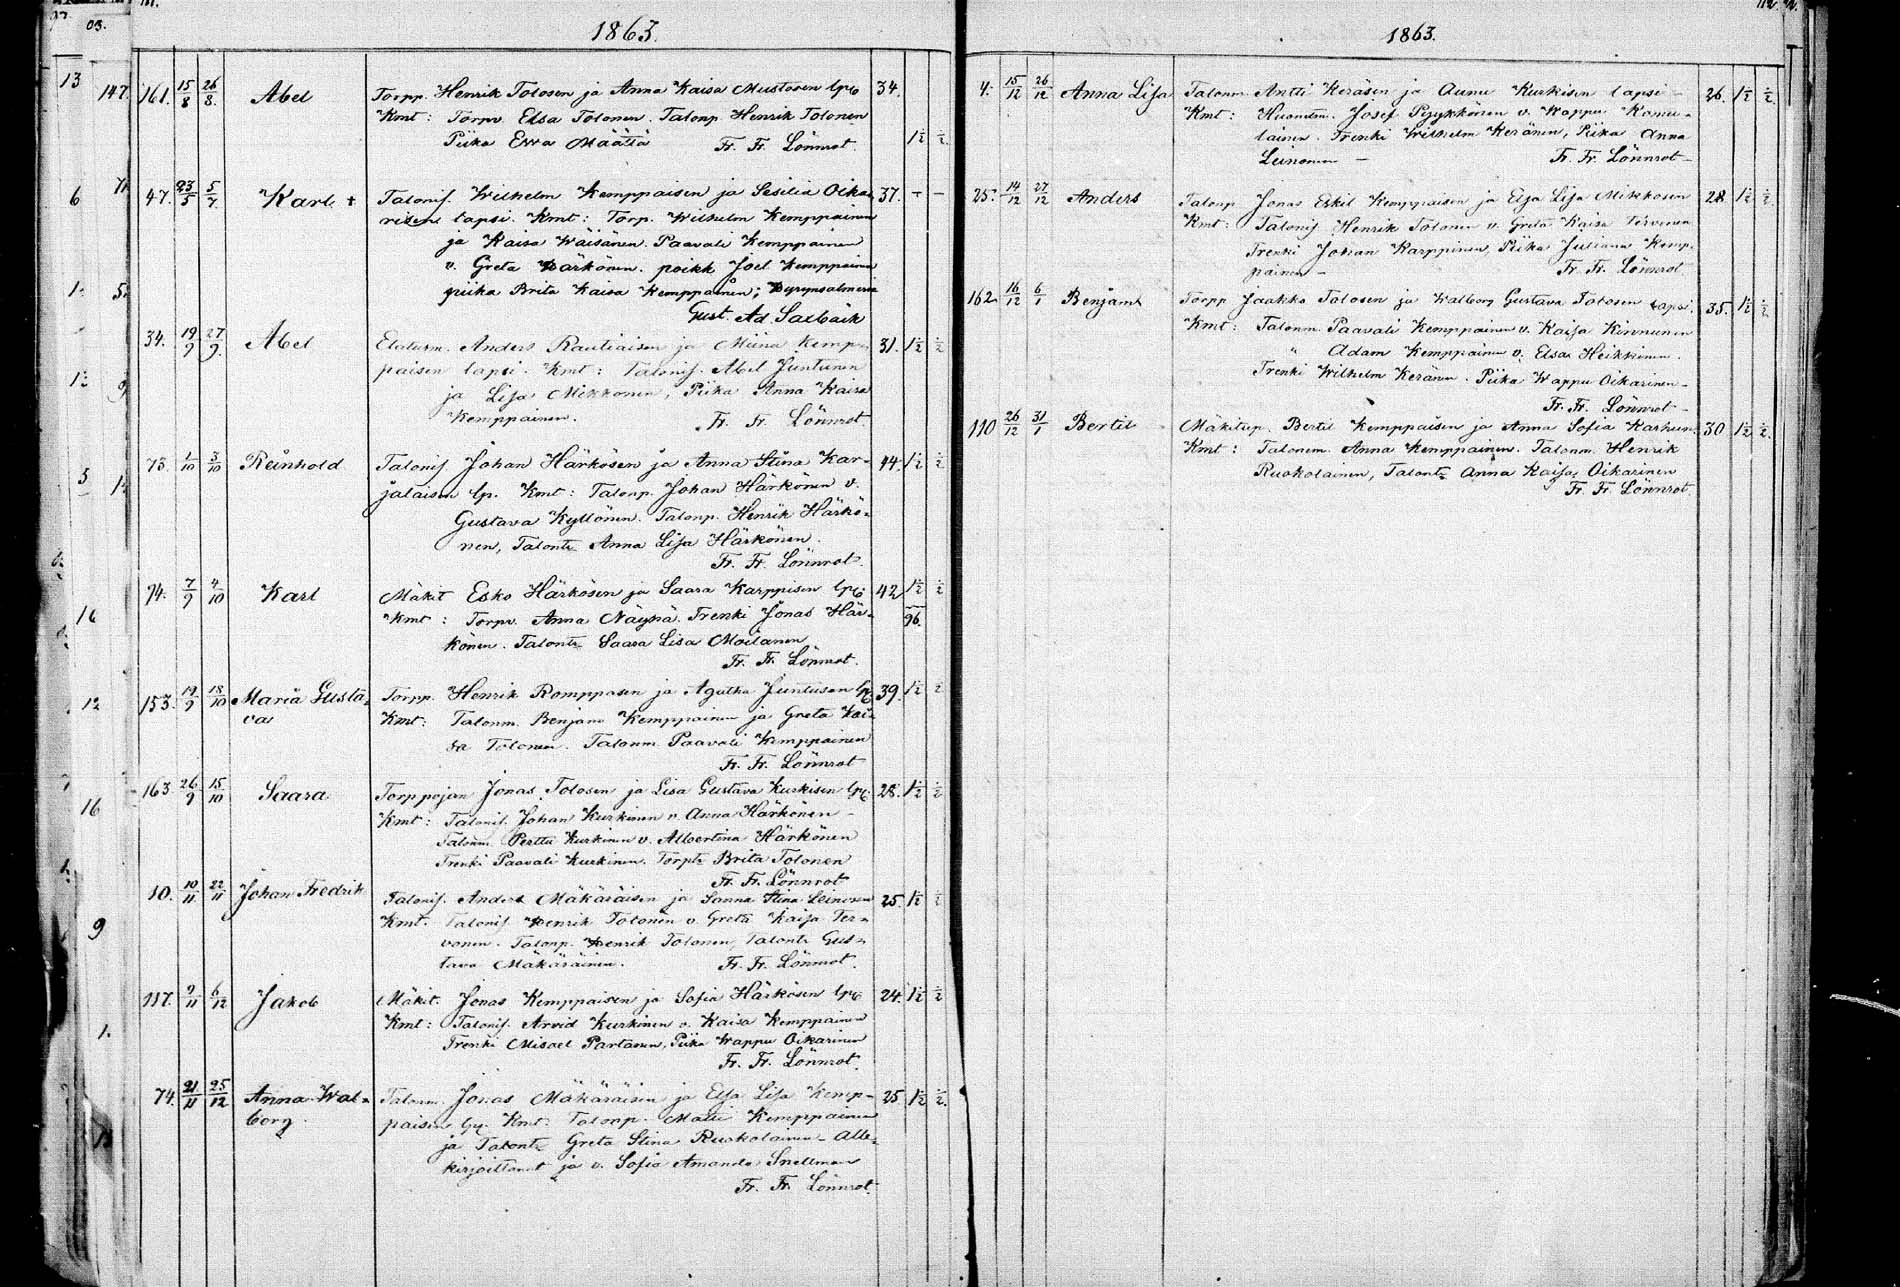 1863.
161. 15/8 26/8. Abel Torpp. Henrik Tolosen ja Anna Kaisa Mustosen lps 34.
Kmt: Torpv. Elsa Tolonen. Talonp. Henrik Tolonen
Piika Ewa Määttä Fr. Fr. Lönnrot 1½ ½
47. 23/5 5/7. Karl + Talonif. Wilhelm Kemppaisen ja Sesilia Oika- 37. - -
risen lapsi. Kmt: Torp. Wilhelm Kemppainen
ja Kaisa Wäisänen. Paavali Kemppainen
v. Greta Härkönen. poikk Joel Kemppainen
piika Brita Kaisa Kemppainen;
Gust. Ad.
34. 19/9 27/9. Abel Anders Rautiaisen ja Miina Kemp- 31. 1½ ½
paisen lapsi. Kmt: Talonif. Abel Juntunen
ja Lisa Mikkonen, Piika Anna Kaisa
Kemppainen. Fr. Fr. Lönnrot.
73. 1/10 3/10 Reinhold Talonif Johan Härkösen ja Anna Stina Kar- 44. 1½ ½
jalaisen lps. Kmt: Talonp. Johan Härkönen v.
Gustava Kyllönen. Talonp. Henrik Härkö-
nen, Talontr Anna Lisa Härkönen.
Fr. Fr. Lönnrot.
74. 7/9 4/10 Karl Mäkit Esko Härkösen ja Saara Karppisen lps 42 1½ ½
Kmt: Torpv. Anna Näynä. Trenki Jonas Här- 96.
könen. Talontr Saara Lisa Moilanen
Fr. Fr. Lönnrot.
153. 19/9 18/10 Maria Gusta- Torpp. Henrik Romppasen ja Agatha Juntusen lps 39. 1½ ½
va Kmt: Talonm. Benjam Kemppainen ja Greta Kai-
sa Tolonen. Talonm. Paavali Kemppainen
Fr. Fr. Lönnrot
163. 26/9 15/10 Saara Torppojan Jonas Tolosen ja Lisa Gustava Kurkisen lps. 28. 1½ ½
Kmt: Talonif. Johan Kurkinen v. Anna Härkönen -
Talonm. Perttu Kurkinen v. Albertina Härkönen
Trenki Paavali Kurkinen. Torptr Brita Tolonen
Fr. Fr. Lönnrot
10. 10/11 22/11 Johan Fredrik Talonif. Anders Mäkäräisen ja Sanna Stina Leinosen 25. 1½ ½
Kmt. Talonif Henrik Tolonen v. Greta Kaisa Ter-
vonen. Talonp. Henrik Tolonen, Talontr Gus-
tava Mäkäräinen. Fr. Fr. Lönnrot.
117. 9/11 6/12 Jakob Mäkit. Jonas Kemppaisen ja Sofia Härkösen lps 24. 1½ ½
Kmt: Talonif. Arvid Kurkinen v. Kaisa Kemppainen
Trenki Misael Partanen, Piika Wappu Oikarinen
Fr. Fr. Lönnrot.
74. 21/11 25/12 Anna Wal- Talonm. Jonas Mäkäräisen ja Elsa Lisa Kemp- 25. 1½ ½.
borg. paisen lps. Kmt: Talonp. Matti Kemppainen
ja Talontr Greta Stina Ruokolainen - Alle-
kirjoittanut ja v. Sofia Amanda Snellman
Fr. Fr. Lönnrot.
1863.
4. 15/12 26/12 Anna Lisa Talonm. Antti Keräsen ja Aunu Kurkisen lapsi - 26. 1½ ½
Kmt: Huonem. Josef Pyykkönen v. Wappu Komu-
lainen. Trenki Wilhelm Keränen, Piika Anna
Leinonen - Fr. Fr. Lönnrot -
25. 14/12 27/12 Anders Talonp Jonas Eskil Kemppaisen ja Elsa Lisa Mikkosen 28 1½ ½
Kmt: Talonif Henrik Tolonen v. Greta Kaisa Tervonen
Trenki Johan Karppinen, Piika Juliana Kemp-
painen - Fr. Fr. Lönnrot.
162 16/12 6/1 Benjam Torpp Jaakko Tolosen ja Walborg Gustava Tolosen lapsi. 35. 1½ ½
Kmt: Talonm. Paavali Kemppainen v. Kaisa Kinnunen
" Adam Kemppainen v. Elsa Heikkinen.
Trenki Wilhelm Keränen. Piika Wappu Oikarinen -
Fr. Fr. Lönnrot -
110 26/12 31/1 Bertil Mäkitup. Bertil Kemppaisen ja Anna Sofia Karhun. 30 1½ ½.
Kmt: Talonem. Anna Kemppainen. Talonm. Henrik
Ruokolainen, Talontr Anna Kaisa Oikarinen
Fr. Fr. Lönnrot.